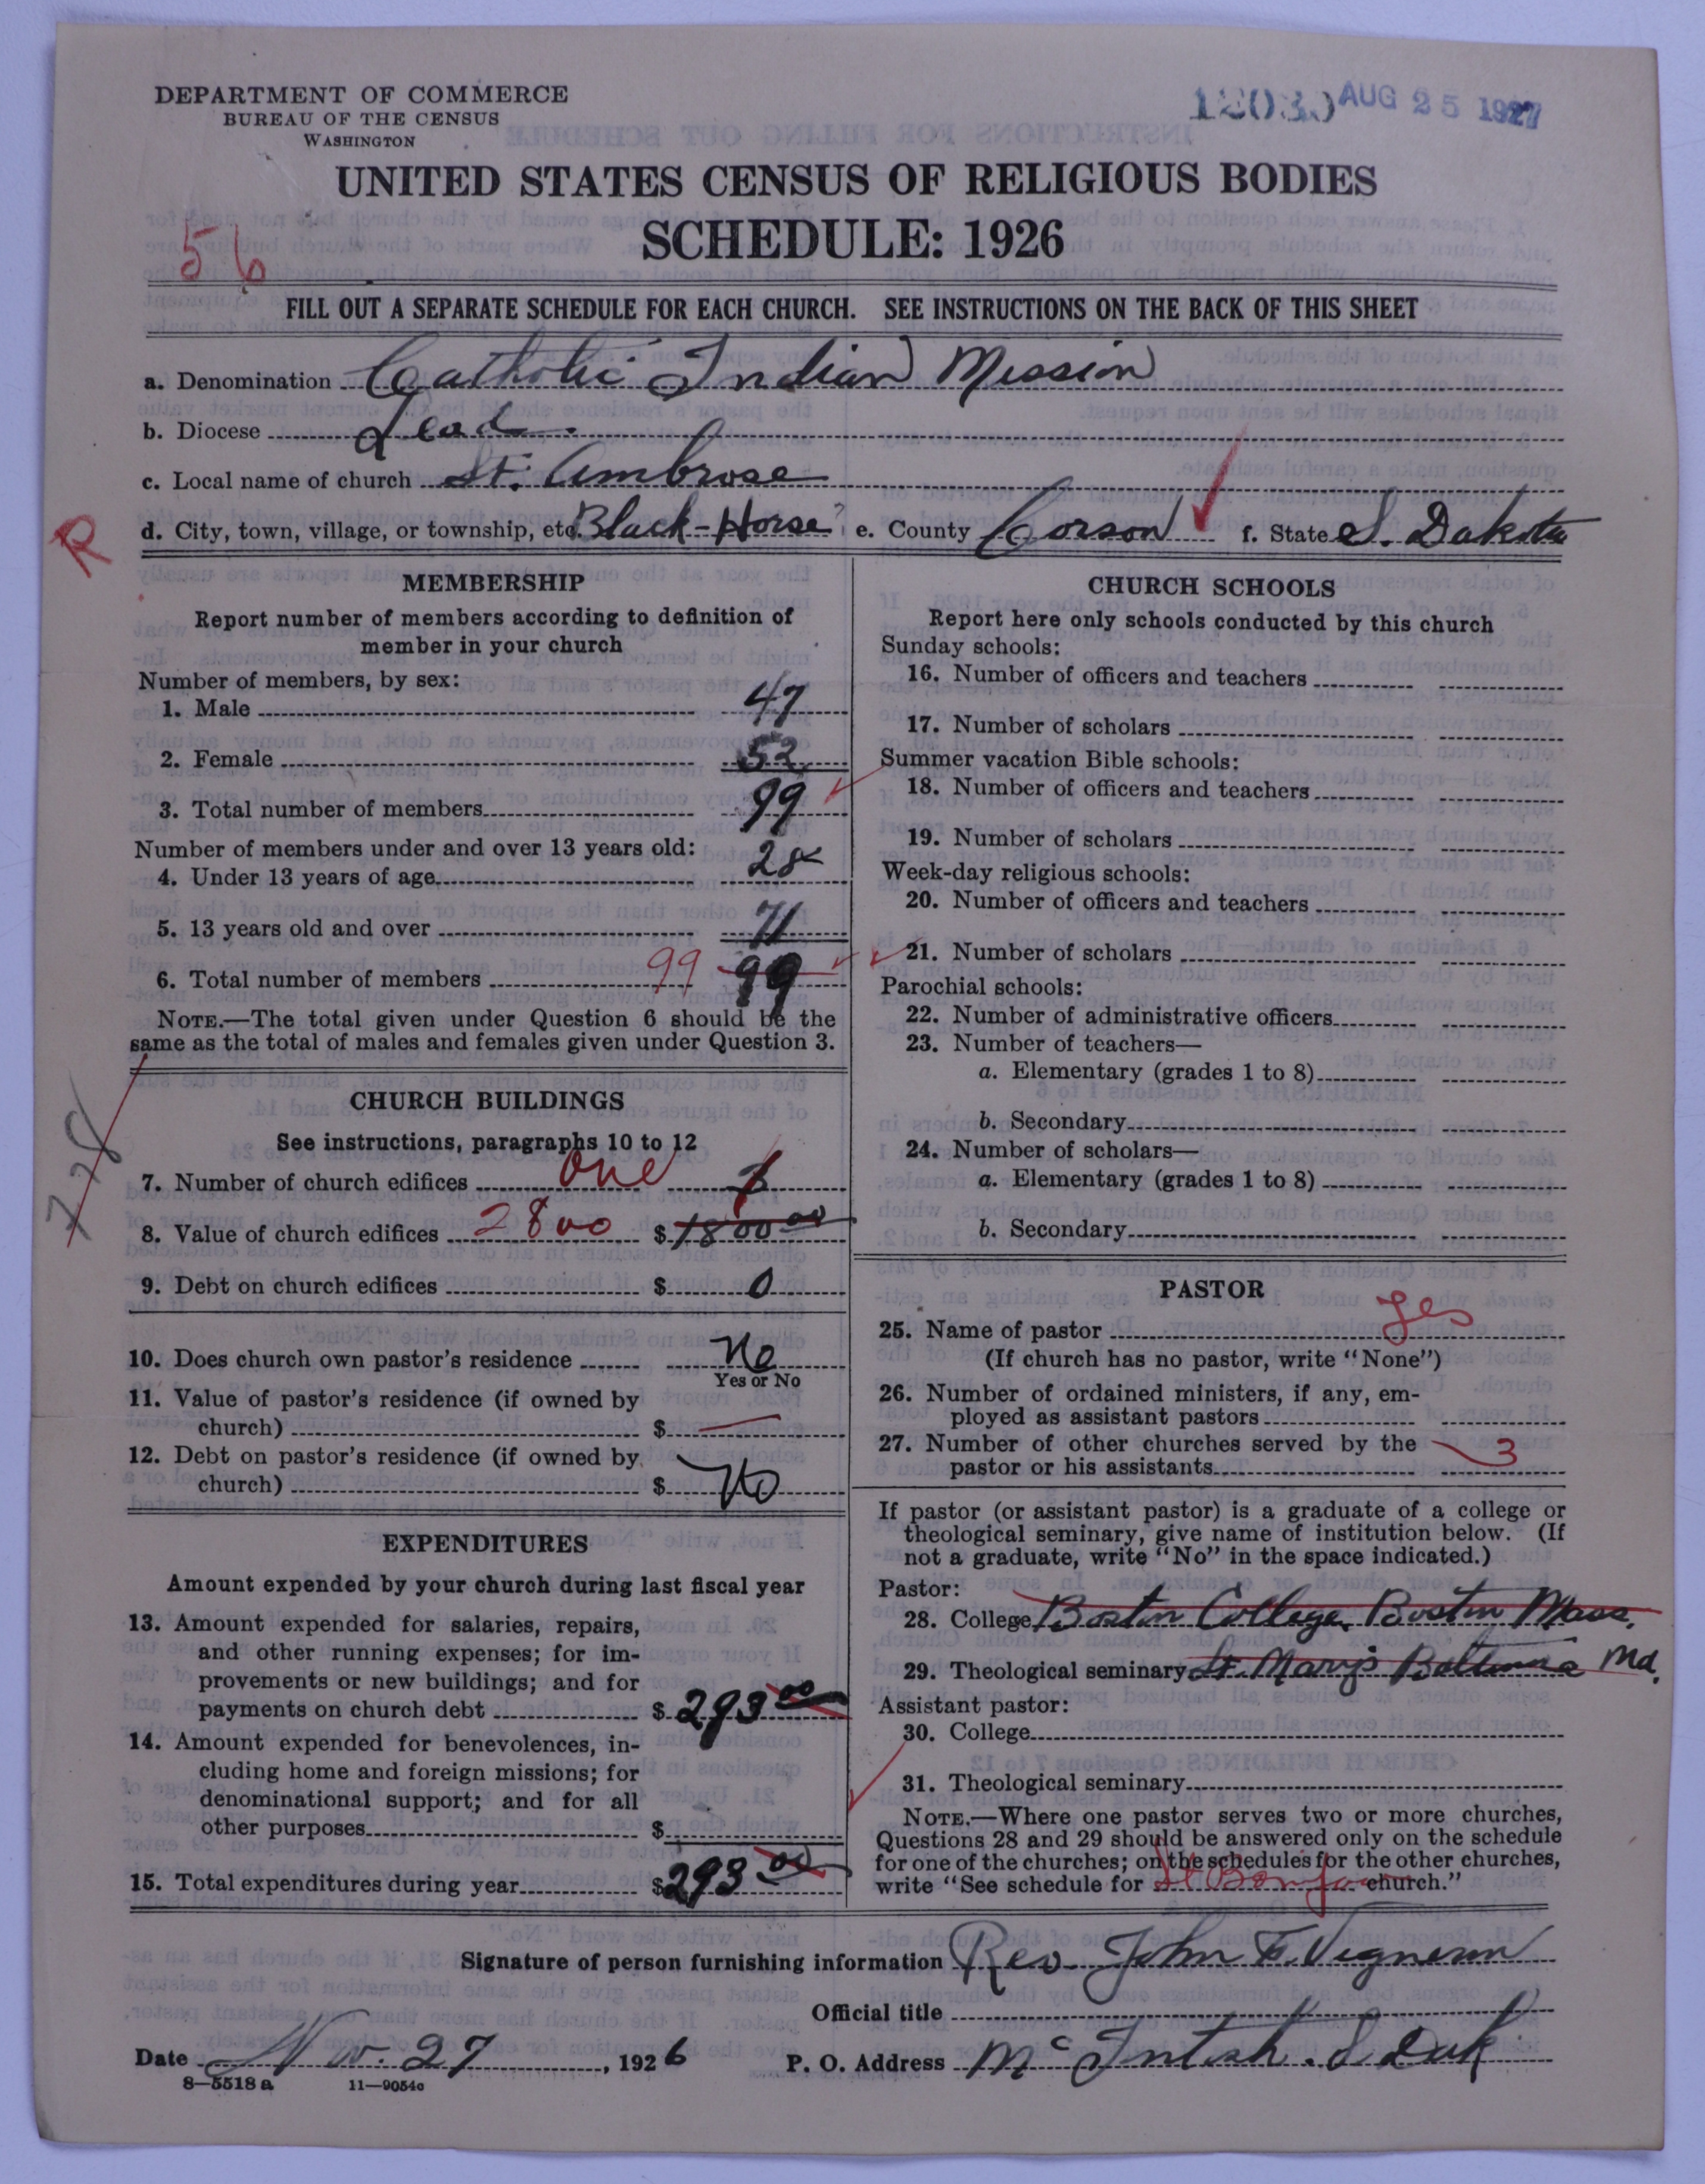 DEPARTMENT OF COMMERCE
BUREAU OF THE CENSUS
WASHINGTON
AUG 25 1927
UNITED STATES CENSUS OF RELIGIOUS BODIES
SCHEDULE: 1926
56
FILL OUT A SEPARATE SCHEDULE FOR EACH CHURCH. SEE INSTRUCTIONS ON THE BACK OF THIS SHEET
a. Denomination Catholic Indian Mission
b. Diocese Lead.
c. Local name of church St. Ambrose
R
d. City, town, village, or township, etc. Black-Horse e. County Corson f. State S. Dakota
MEMBERSHIP
Report number of members according to definition of
member in your church
Number of members, by sex:
1. Male 47
2. Female 52
3. Total number of members 99
Number of members under and over 13 years old:
4. Under 13 years of age 28
5. 13 years old and over 71
6. Total number of members 99 99
NOTE.—The total given under Question 6 should be the
same as the total of males and females given under Question 3.
CHURCH BUILDINGS
See instructions, paragraphs 10 to 12
7. Number of church edifices one
8. Value of church edifices 2800 $1800 00
9. Debt on church edifices $ 0
10. Does church own pastor's residence No
Yes or No
11. Value of pastor's residence (if owned by
church) $ —
12. Debt on pastor's residence (if owned by
church) $ No
EXPENDITURES
Amount expended by your church during last fiscal year
13. Amount expended for salaries, repairs,
and other running expenses; for im-
provements or new buildings; and for
payments on church debt $ 293 00
14. Amount expended for benevolences, in-
cluding home and foreign missions; for
denominational support; and for all
other purposes $
15. Total expenditures during year $293 00
CHURCH SCHOOLS
Report here only schools conducted by this church
Sunday schools:
16. Number of officers and teachers
17. Number of scholars
Summer vacation Bible schools:
18. Number of officers and teachers
19. Number of scholars
Week-day religious schools:
20. Number of officers and teachers
21. Number of scholars
Parochial schools:
22. Number of administrative officers
23. Number of teachers—
a. Elementary (grades 1 to 8)
b. Secondary
24. Number of scholars—
a. Elementary (grades 1 to 8)
b. Secondary
PASTOR
25. Name of pastor yes
(If church has no pastor, write "None")
26. Number of ordained ministers, if any, em-
ployed as assistant pastors
27. Number of other churches served by the
pastor or his assistants 3
If pastor (or assistant pastor) is a graduate of a college or
theological seminary, give name of institution below. (If
not a graduate, write "No" in the space indicated.)
Pastor:
28. College Boston College, Boston Mass.
29. Theological seminary St. Mary's Baltimore Md.
Assistant pastor:
30. College
31. Theological seminary
NOTE.—Where one pastor serves two or more churches,
Questions 28 and 29 should be answered only on the schedule
for one of the churches; on the schedules for the other churches,
write "See schedule for church."
Signature of person furnishing information Rev. John F. Vigneron
Official title
Date Nov. 27, 1926 P. O. Address McIntosh. S Dak
8—5518 a 11—9054c